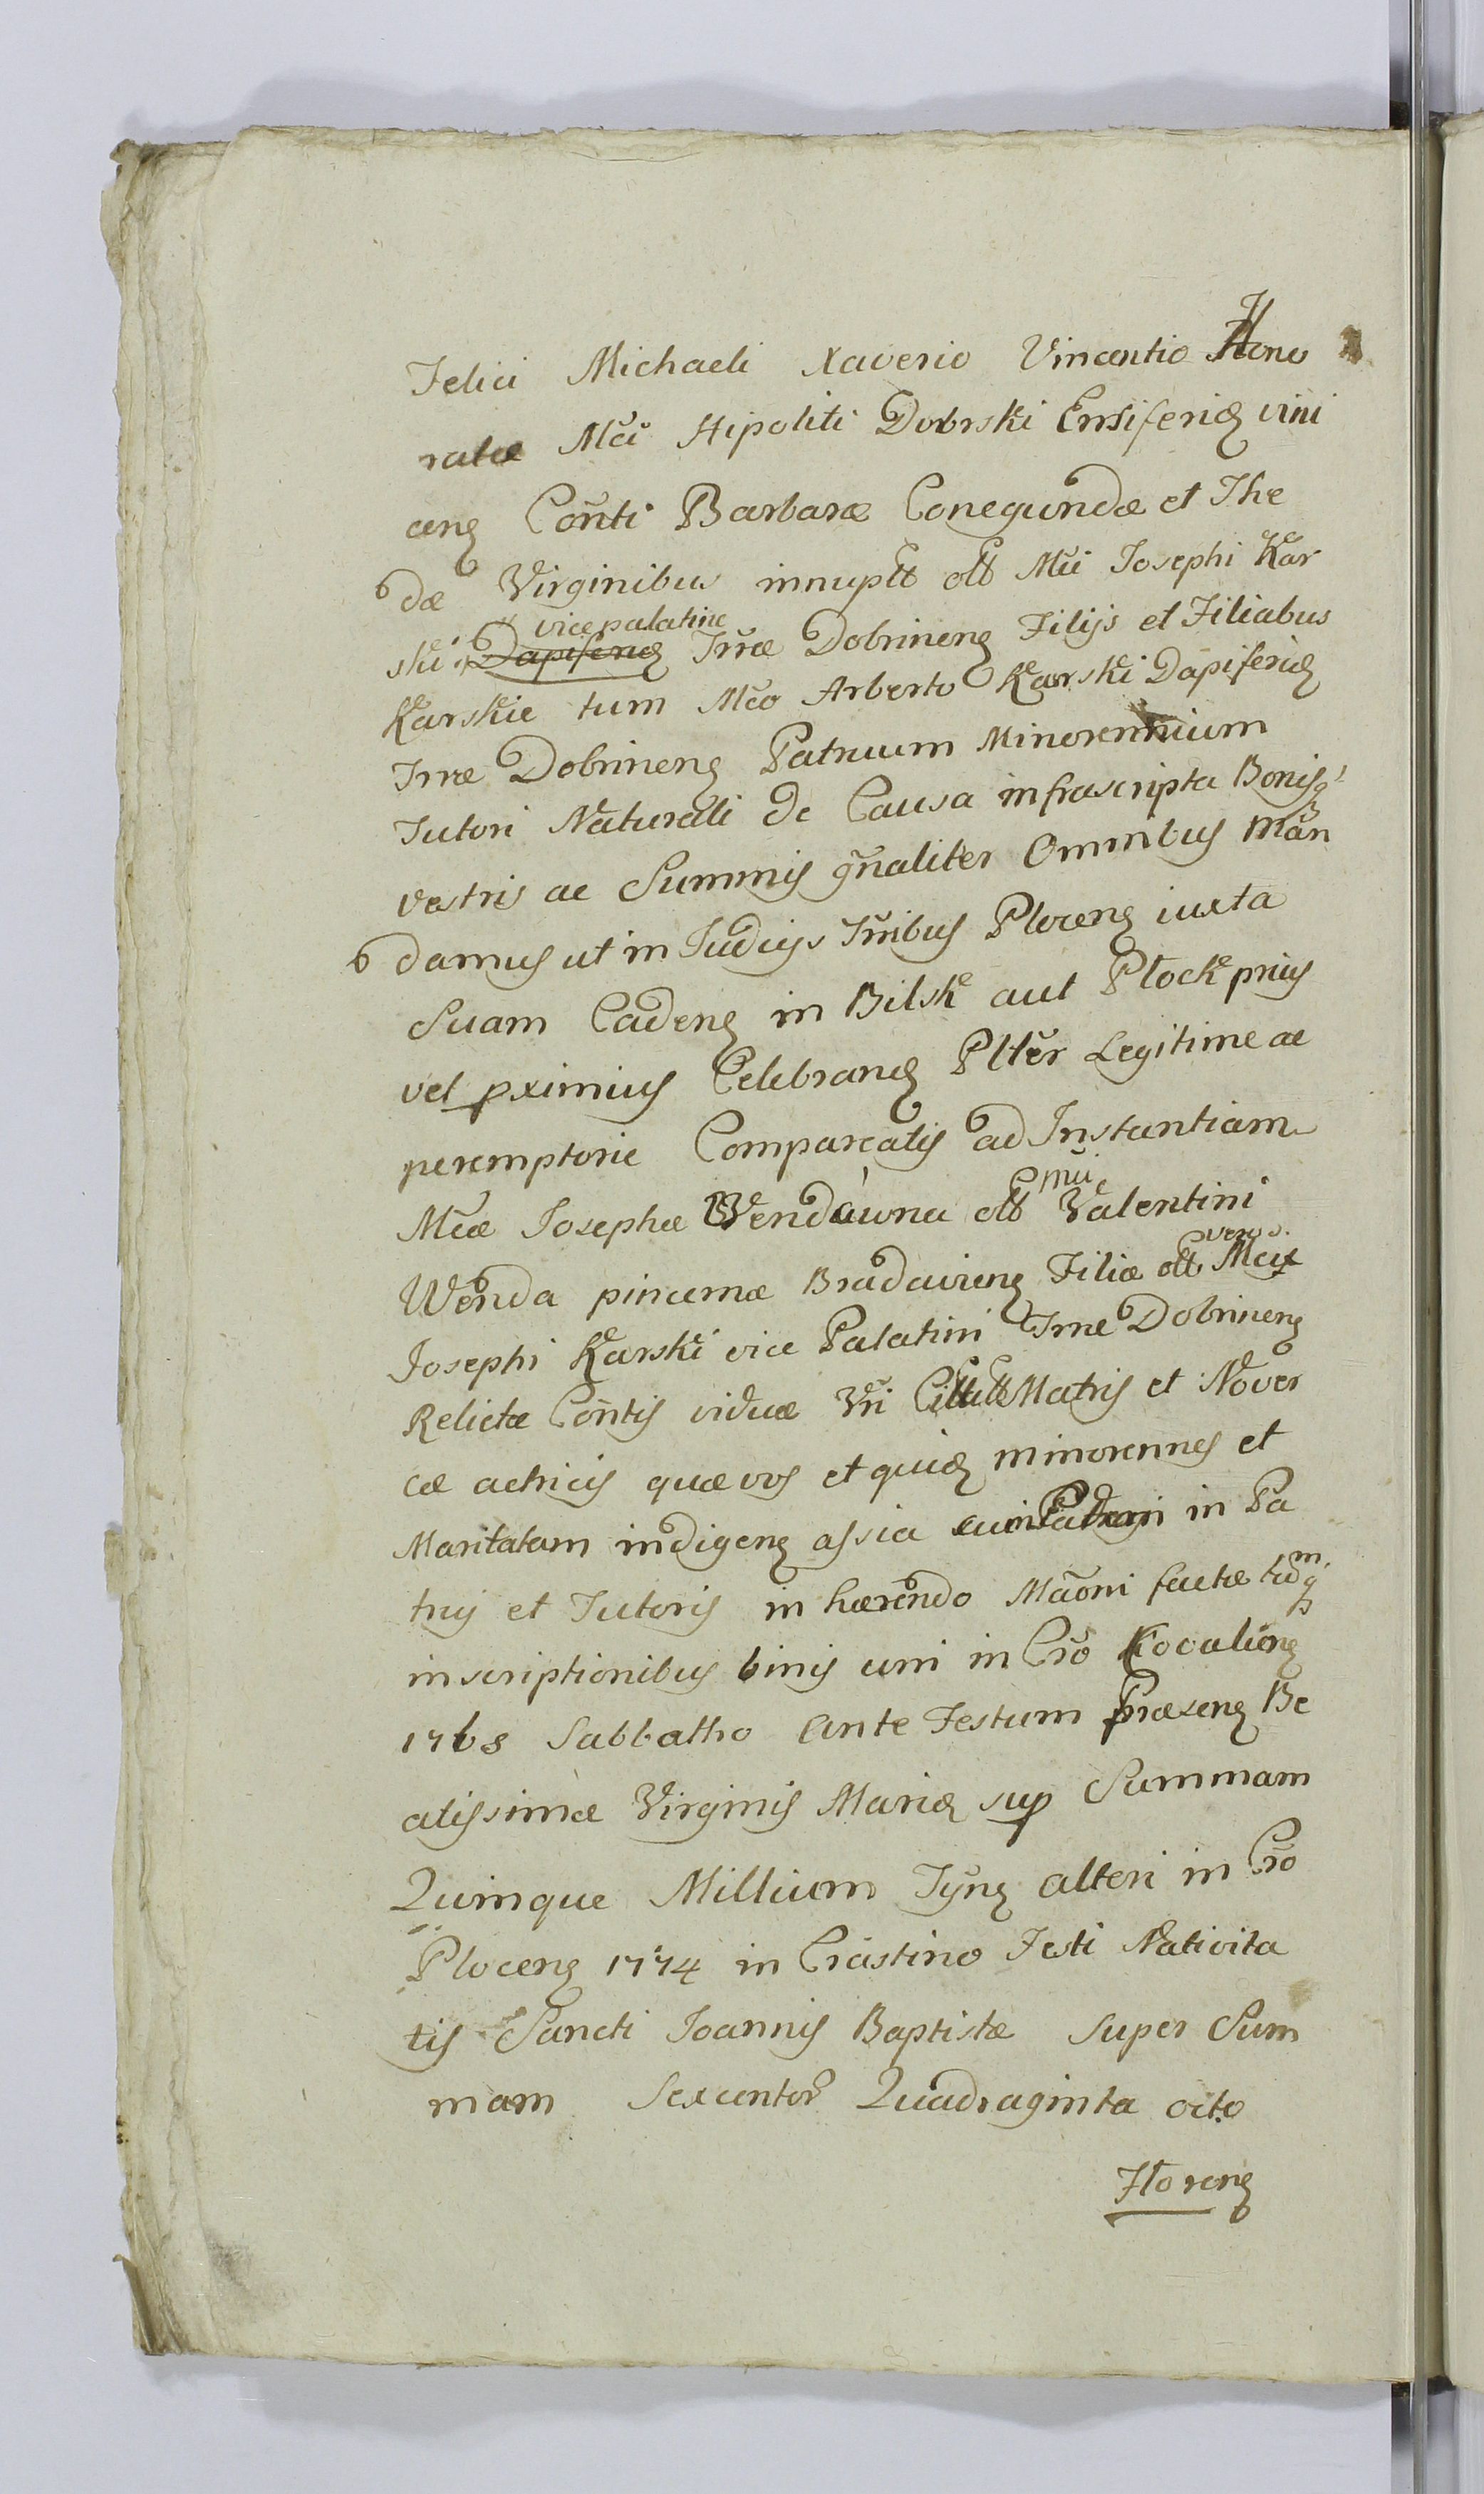 Felici Michaeli Xaverio Vincentio Hono
ratæ Mci Hipoliti Dobrski Ensiferid vini
ceng Cõnti Barbaræ Conegundæ et The
dæ Virginibus innuptt olt Mci Josephi Kar
ski vicepalatini Dapiferid Trræ Dobrineng Filijs et Filiabus
Karskie tum Mco Arberto Karski Dapiferid
Trræ Dobrineng Patruum Minorennium
Tutori Naturali de Causa infrascripta Bonisq
vestris ac Summis gñaliter Omnibus Mãn
damus ut in Judicijs Trribus Ploceng iuxta
Suam Cadeng in Bilsk aut Płock prius
vel pximius Celebrand Pltter Legitime ac
peremptorie Compareatis ad Instantiam
Mcæ Josephæ Wendówna olt Mci Valentini
Wenda pincernæ Bradavieng Filiæ olt vero Mci
Josephi Karski vice Palatini Trræ Dobrineng
Relictæ Cõntis viduæ Vri Matris et Nover
cæ actricis quæ vos et quid minorennes et
Maritatam indigeng assia in Pa
truj et Tutoris in hærendo Mãoni factæ
inscriptionibus binis uni in Cro Kovalieng
1768 Sabbatho Ante Festum Præseng Be
atissimæ Virginis Mariæ sup Summam
Quinque Millium Tyng alteri in Cro
Ploceng 1774 in Crastino Festi Nativita
tis Sancti Joannis Baptistæ Super Sum
mam Sexcentor Quadraginta octo
Floreng